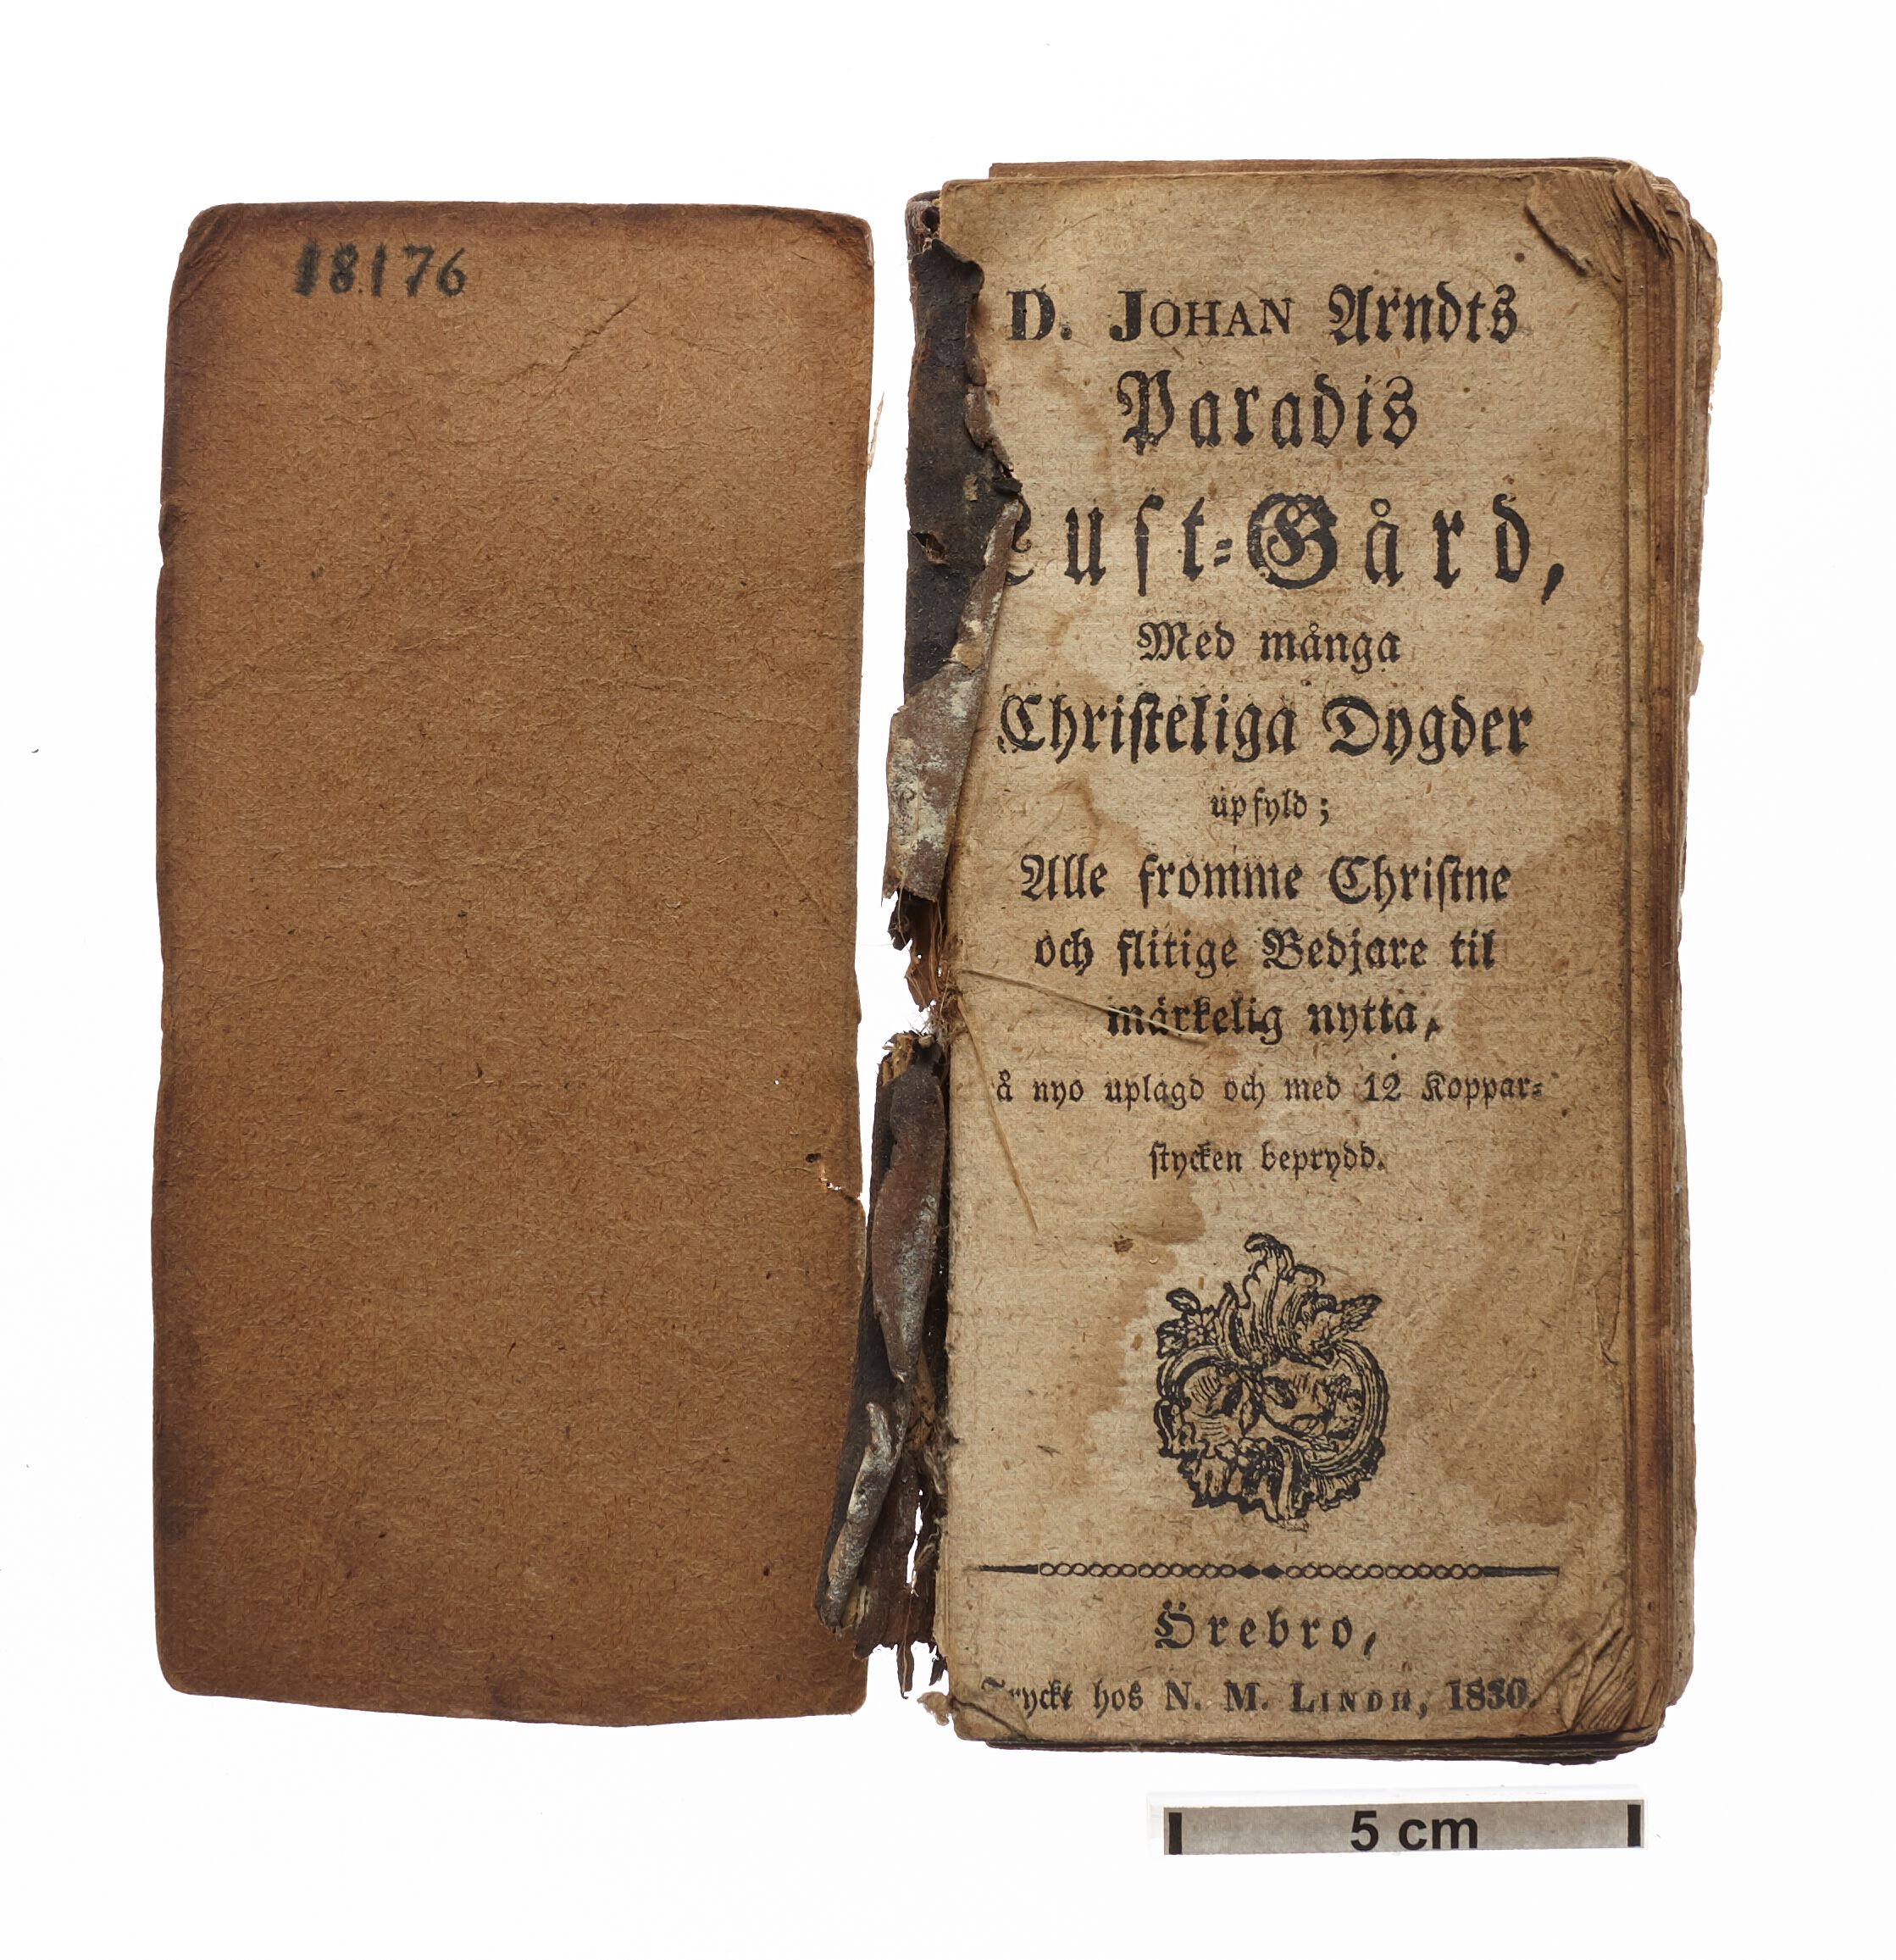 18176
D. JOHAN Arndts
Paradis
Lust-Gård,
Med många
Christeliga Dygder
upfyld;
Alle fromme Christne
och flitige Bedjare til
märkelig nytta,
å nyo uplagd och med 12 Koppar-
stycken beprydd.
Örebro,
Tryckt hos N. M. LINDH, 1830.
5 cm